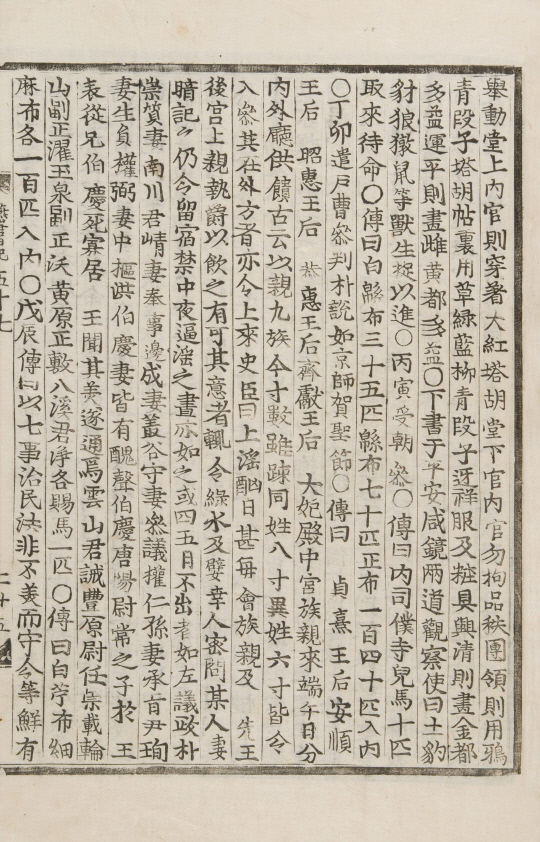 擧動堂上內官則穿著大紅塔胡堂下官內官勿拘品秩團領則用鴉
靑段子塔胡帖裏用草綠藍柳靑段子迓祥服及粧具興淸則畫金都
多益運平則畫雌黃都多益○下書于平安咸鏡兩道觀察使曰土豹
豺狼獤鼠等獸生捉以進○丙寅受朝參○傳曰內司僕寺兒馬十匹
取來待命○傳曰白緜布三十五匹緜布七十匹正布一百四十匹入內
○丁卯遣戶曹參判朴說如京師賀聖節○傳曰 貞熹王后安順
王后 昭惠王后 恭惠王后齊獻王后 大妃殿中宮族親來端午日分
內外廳供饋古云以親九族今寸數雖踈同姓八寸異姓六寸皆令
入參其在外方者亦令上來史臣曰上淫酗日甚每會族親及 先王
後宮上親執爵以飮之有可其意者輒令綠水及嬖幸人密問某人妻
暗記之仍令留宿禁中夜逼淫之晝亦如之或四五月不出者如左議政朴
崇質妻南川君崝妻奉事邊成妻叢谷守妻參議權仁孫妻承旨尹珣
妻生員權弼妻中樞洪伯慶妻皆有醜聲伯慶唐陽尉常之子於 王
表從兄伯慶死寡居 王聞其美遂通焉雲山君誡豐原尉任崇載輪
山副正濯玉泉副正沃黃原正斅八溪君淨各賜馬一匹○傳曰白苧布細
麻布各一百匹入內○戊辰傳曰以七事治民法非不美而守令等鮮有
五十七 二十五